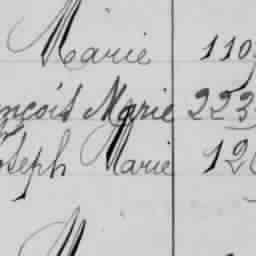 Marie 110
nçois Marie 223
oseph Marie 12
M